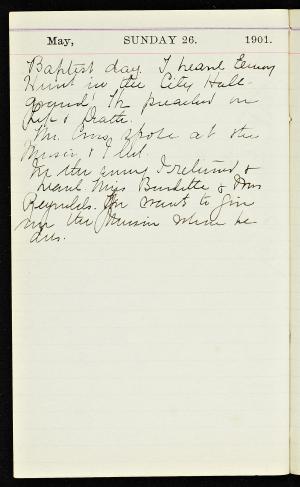 May, SUNDAY 26. 1901.
Baptist day. I heard Emory
Hunt in the City Hall
ground. He preached on
Life & Death.
Mr. spoke at the
& I
In the evning I returned &
heard Miss Burdette & Mrs
Reynolds. want to give
me the when he
dies.